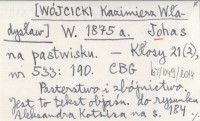 [WÓJCICKI Kazimierz Wła-
dysław] W. 1875 a. Johas
na pastwisku. — Kłosy 21(2),
nr 533: 190. CBG
Pasterstwo i zbójnictwo.
Jest to tekst objaśn. do rysunku
Aleksandra Kotsisa na s. 184.